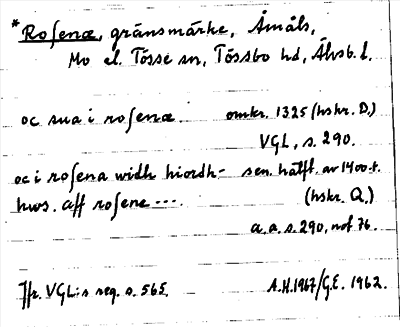 *Rosenæ, gränsmärke, Åmåls,
Mo el. Tössse sn, Tössbo hd, Älvsb. l.
oc sua i rosenæ. omkr. 1325 (hskr. D.)
VGL, s. 290.
oc i rosena widh hiordh- sen. hälft. av 1400-t.
hws. aff rosene --- (hskr. Q.)
a.a. s. 290, not 76.
Jfr. VGL:s reg. s. 565. A.H. 1967/G.E. 1962.